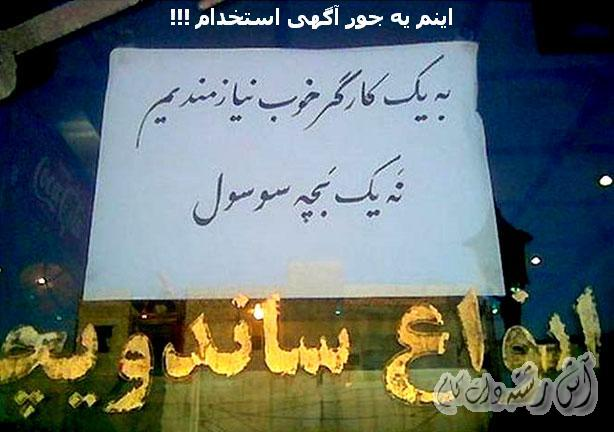 اینم یه جور آگهی استخدام !!!
به یک کارگر خوب نیازمندیم
نَه یک بَچه سوسول
انواع ساندویچ
آش رشته دات کام